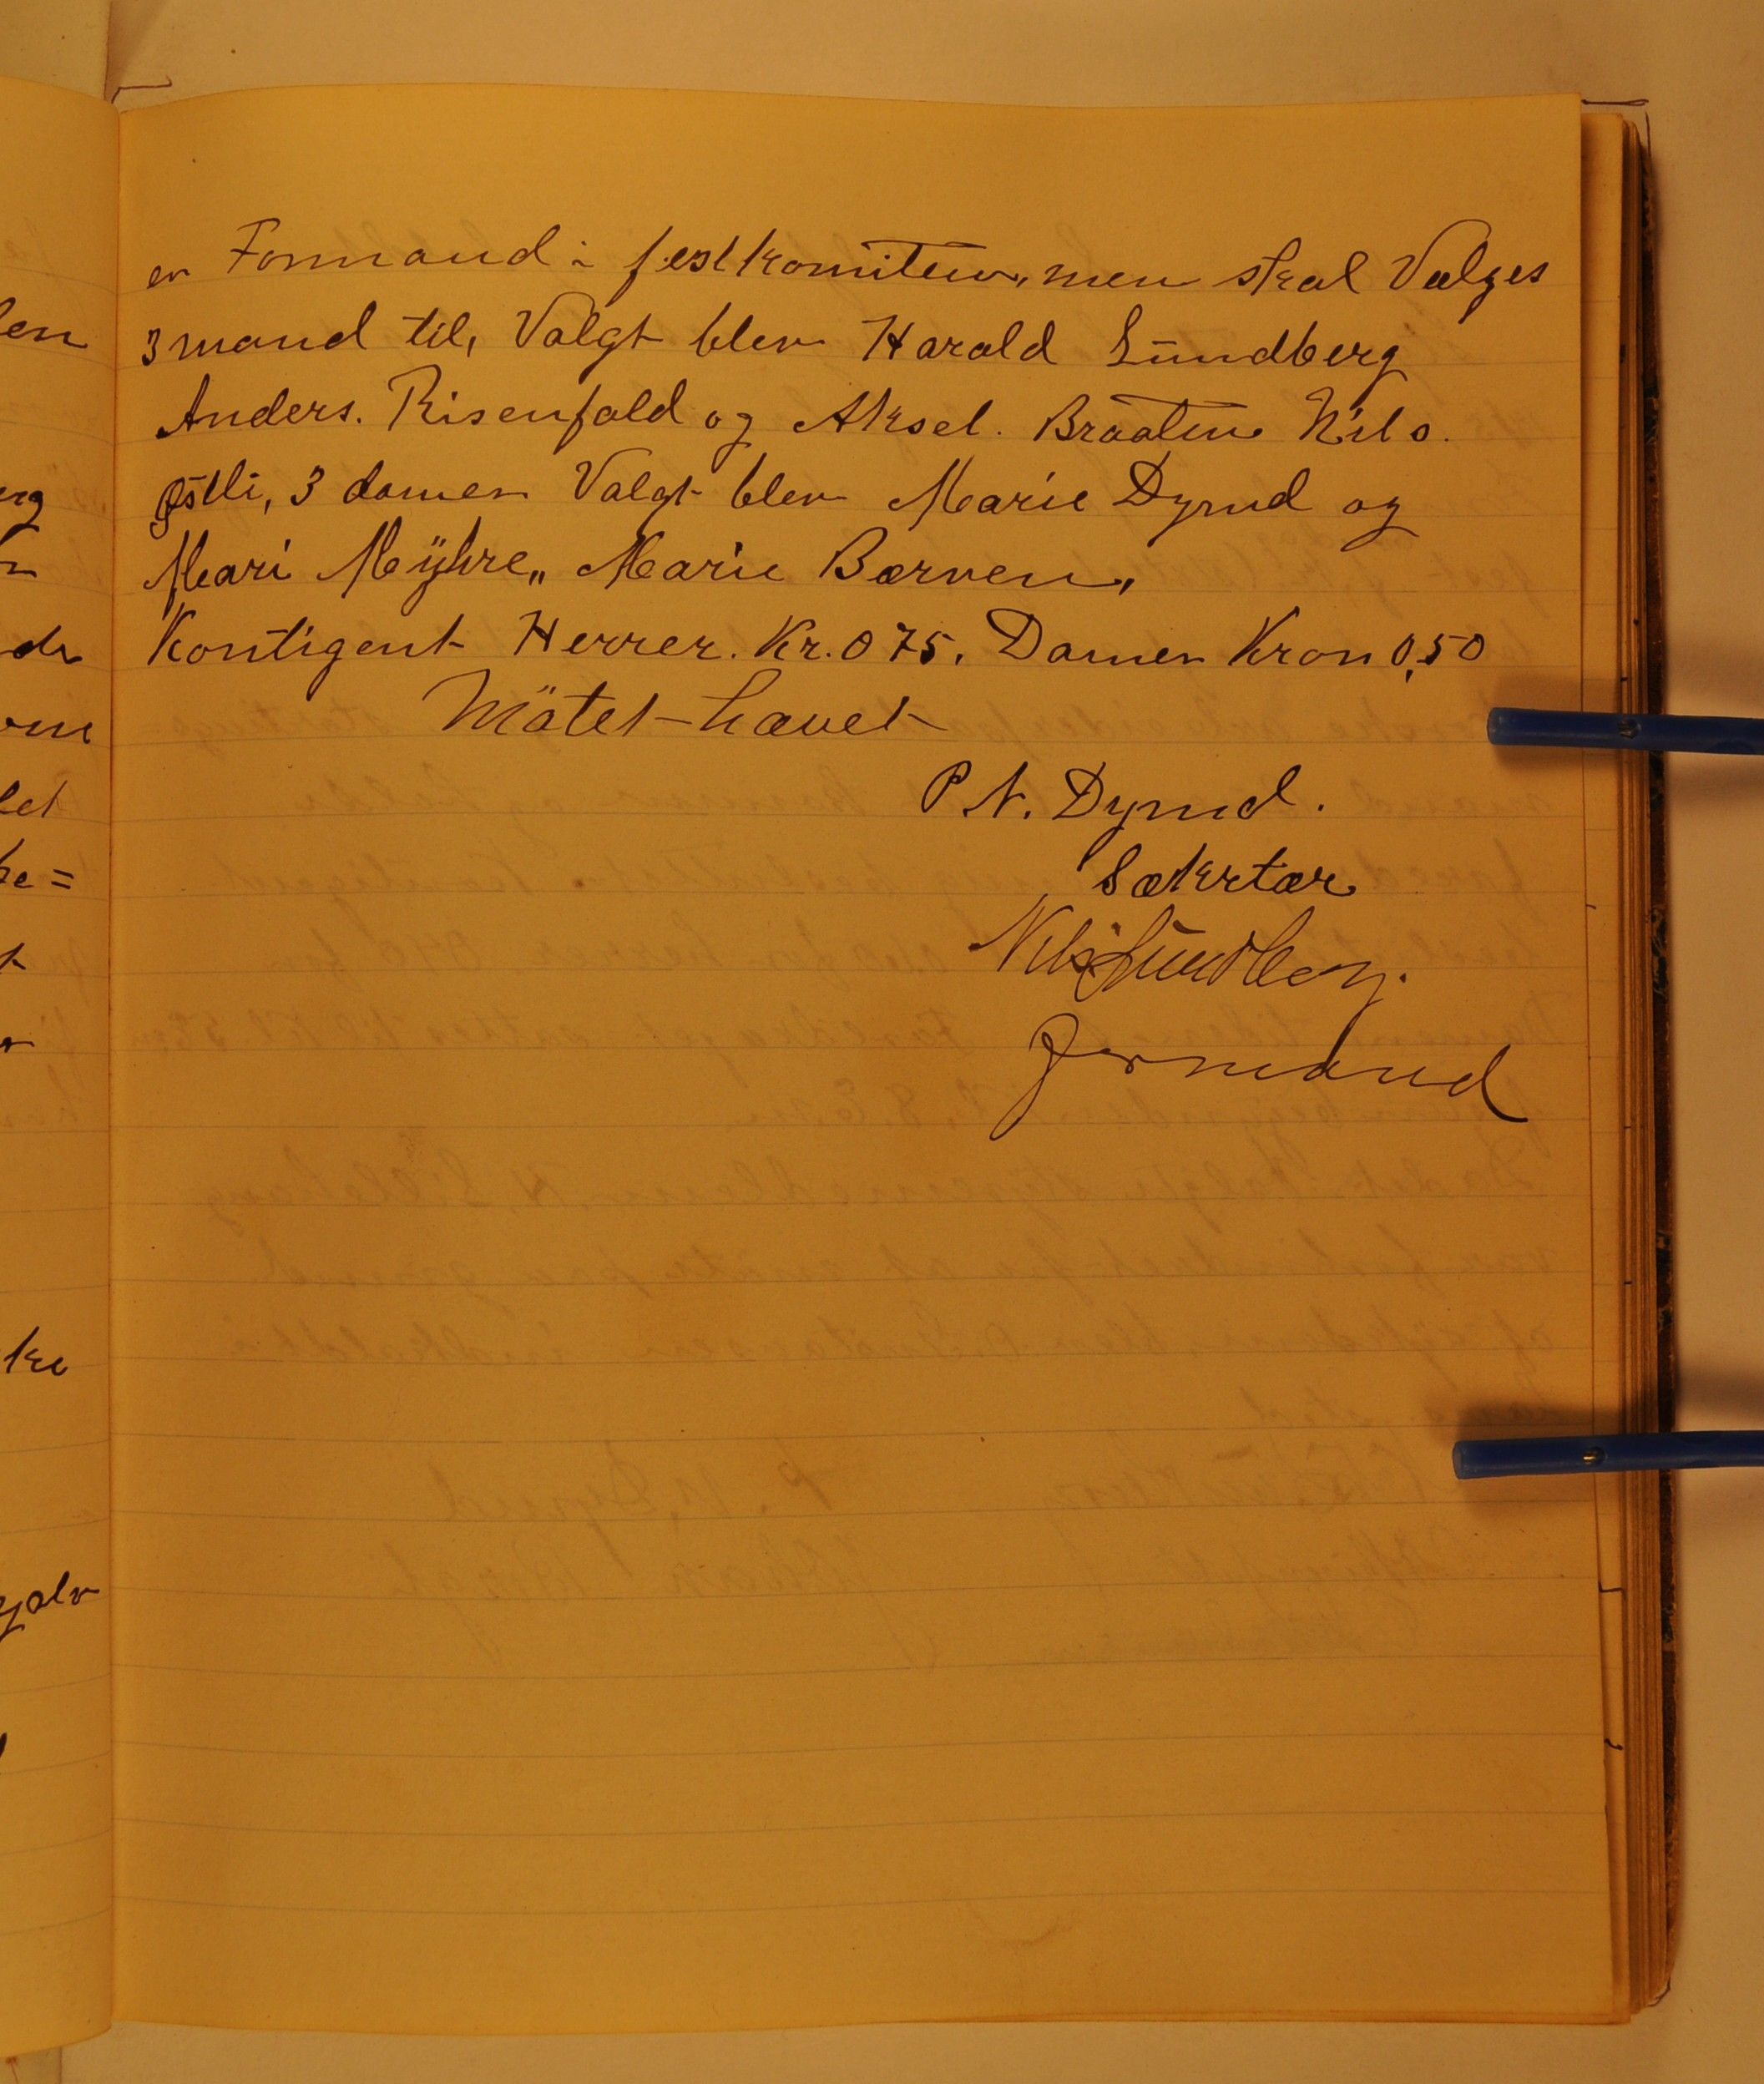 er Formand i festkomiteen, men skal Vælges
3 mand til, Valgt blev Harald Lundberg
Anders. Risenfald og Aksel. Braaten Nils.
Østli, 3 damer Valgt blev Marie Dyrud og
Mari Mÿhre„ Marie Børven,
Kontigent Herrer. Kr. 0 75. Damer Kron 0,50
Mötet hævet
P. N. Dyrud.
Sækertær
Nils Lundberg.
Formand